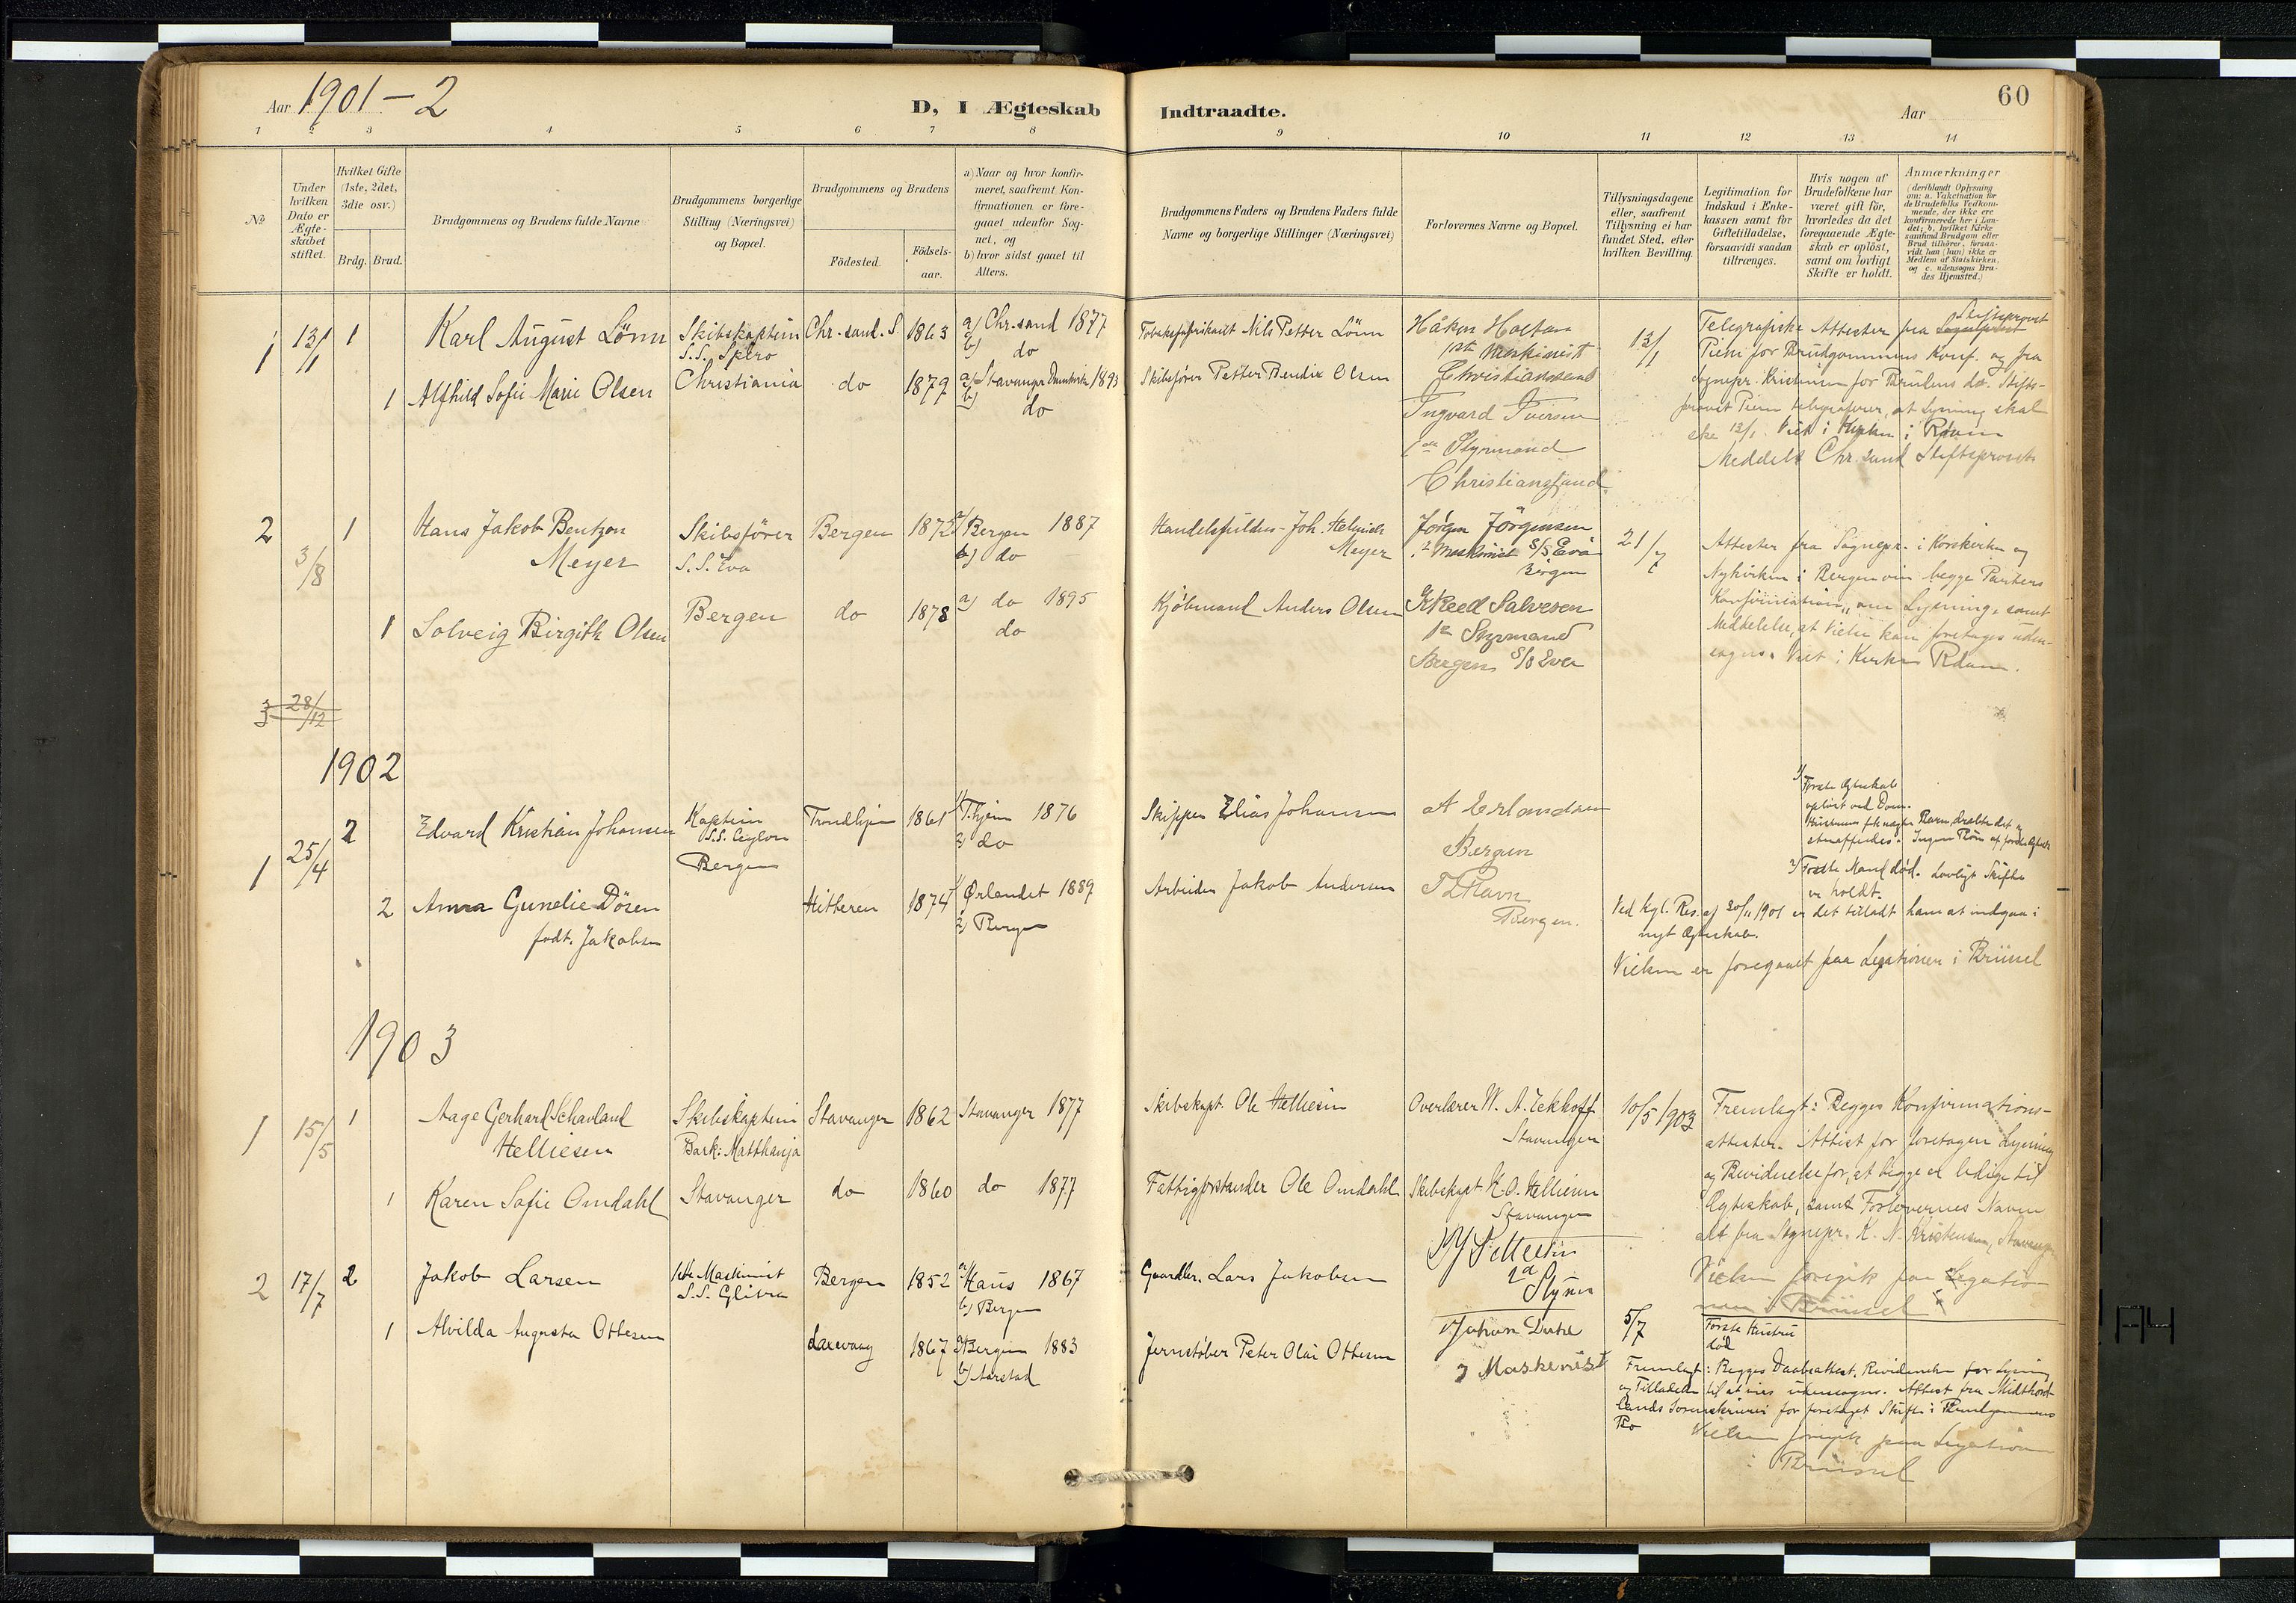 Aar 1901-2
D, I Ægteskab
Indtraadte.
Aar
60
1 2 3 4 5 6 7 8 9 10 11 12 13 14
No
Under hvilken Dato er Ægteskabet stiftet.
Hvilket Gifte (1ste, 2det, 3die osv.)
Brdg. Brud.
Brudgommens og Brudens fulde Navne
Brudgommens borgerlige Stilling (Næringsvei) og Bopæl.
Brudgommens og Brudens
Födested.
Födselsaar.
a) Naar og hvor konfirmeret, saafremt Konfirmationen er foregaaet udenfor Sognet, og
b) hvor sidst gaaet til Alters.
Brudgommens Faders og Brudens Faders fulde Navne og borgerlige Stillinger (Næringsvei)
Forlovernes Navne og Bopæl.
Tillysningsdagene eller, saafremt Tillysning ei har fundet Sted, efter hvilken Bevilling.
Legitimation for Indskud i Enkekassen samt for Giftetilladelse, forsaavidt saadan tiltrænges.
Hvis nogen af Brudefolkene har været gift för, hvorledes da det foregaaende Ægteskab er oplöst, samt om lovligt Skifte er holdt.
Anmærkninger
(deriblandt Oplysning om: a. Vakcination for de Brudefolks Vedkommende, der ikke ere konfirmerede her i Landet; b. hvilket Kirkesamfund Brudgom eller Brud tilhörer, forsaavidt han (hun) ikke er Medlem af Statskirken, og c. udensogns Brudes Hjemsted.)
1 13/1 1 Karl August Lönn Skibskaptein S.S. Spero Chr.sand. S. 1863 a) Chr.sand 1877 b) do
Tobaksfabrikant Nils Petter Lönn
Håkon
1ste Maskinist
Christianssand
13/1
1 Alfhild Sofie Marie Olsen Christiania do 1879 a) Stavanger Domkirke 1893 b) do
Skibsfører Petter Bendix Olsen
Ingvard Iversen
1ste Styrmand
Christianssand
Telegrafiske Attester fra Stiftsprovst
Piene for Brudgommens Konf. og fra
Sognepr. for Brudens do. Stifts-
provst telegraferer, at Lysning skal
ske 13/1. Viet i Kirken i Rdam
Meddelt Chr.sand Stiftsprovst
2 3/8 1 Hans Jakob Bentzon Meyer Skibsförer S.S. Eva Bergen 1872 a) Bergen 1887 b) do
Joh. Helmich Meyer
Jørgen Jörgensen
2 Maskinist S/S Eva
Bergen
21/7
1 Solveig Birgith Olsen Bergen do 1878 a) do 1895 do
Kjöbmand Anders Olsen
Reed Salvesen
1ste Styrmand
Bergen S/S Eva
Attester fra Sognepr. i Korskirken og
Nykirken i Bergen om begge Parters
Konfirmation, om Lysning, samt
Meddelelse, at Vielse kan foretages uden-
sogns. Viet i Kirken Rdam.
3 28/12
1902
1 25/4 2 Edvard Kristian Johansen Kaptein S.S. Ceylon Bergen Trondhjem 1861 1) T.hjem 1876 2) do
Skipper Elias Johansen
A Erlandsen
Bergen
2 Anna Gunelie Dösen født Jakobsen Hitteren 1874 1) Ørlandet 1889 2) Bergen
Arbeider Jakob Andersen
Havn
Bergen.
1) Første Ægteskab
opløst ved Dom.
2) Første Mand død. Lovligt Skifte
er holdt.
Ved Kgl. Res. af 30/11 1901 er det tilladt ham at indgaa i
nyt Ægteskab.
Vielsen er foregaaet paa Legationen i Brüssel
1903
1 15/5 1 Aage Gerhard Schavland Helliesen Skibskaptein Bark: Matthanja Stavanger 1862 Stavanger 1877
Skibskapt. Ole Helliesen
Overlærer W. A. Eckhoff
Stavanger
10/5 1903
1 Karen Sofie Omdahl Stavanger do 1860 do 1877
Fattigforstander Ole Omdahl
Skibskapt. H. O. Helliesen
Stavanger
Fremlagt: Begges Konfirmations-
attester. Attest for foretagen Lysning
og Bevidnelse for, at begge er ledige til
Ægteskab, samt Forlovernes Navne
alt fra Sognepr. K. N. Kristensen, Stavanger
Vielsen foregik paa Legatio-
nen i Brüssel
2 17/7 2 Jakob Larsen 1ste Maskinist S.S. Bergen 1852 a) Haus 1867 b) Bergen
Gaardbr. Lars Jakobsen
2d Styrm
1 Alvilda Augusta Ottesen Laxevaag 1867 a) Bergen 1883 b) Aarstad
Jernstøber Peter Olai Ottesen
Johan
Maskinist
5/7
Første Hustru
død
Fremlagt: Begges Daabsattest. Bevidnelse for Lysning
og Tilladelse til at vies udensogns. Attest fra Midthord-
lands Sorenskriveri for foretaget Skifte i Brudgommens
Bo
Vielsen foregik paa Legationen
i Brüssel